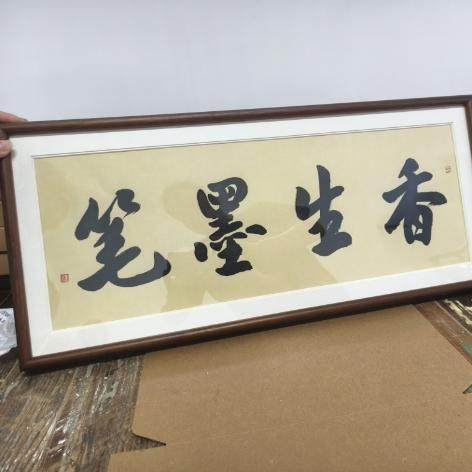 笔墨生香